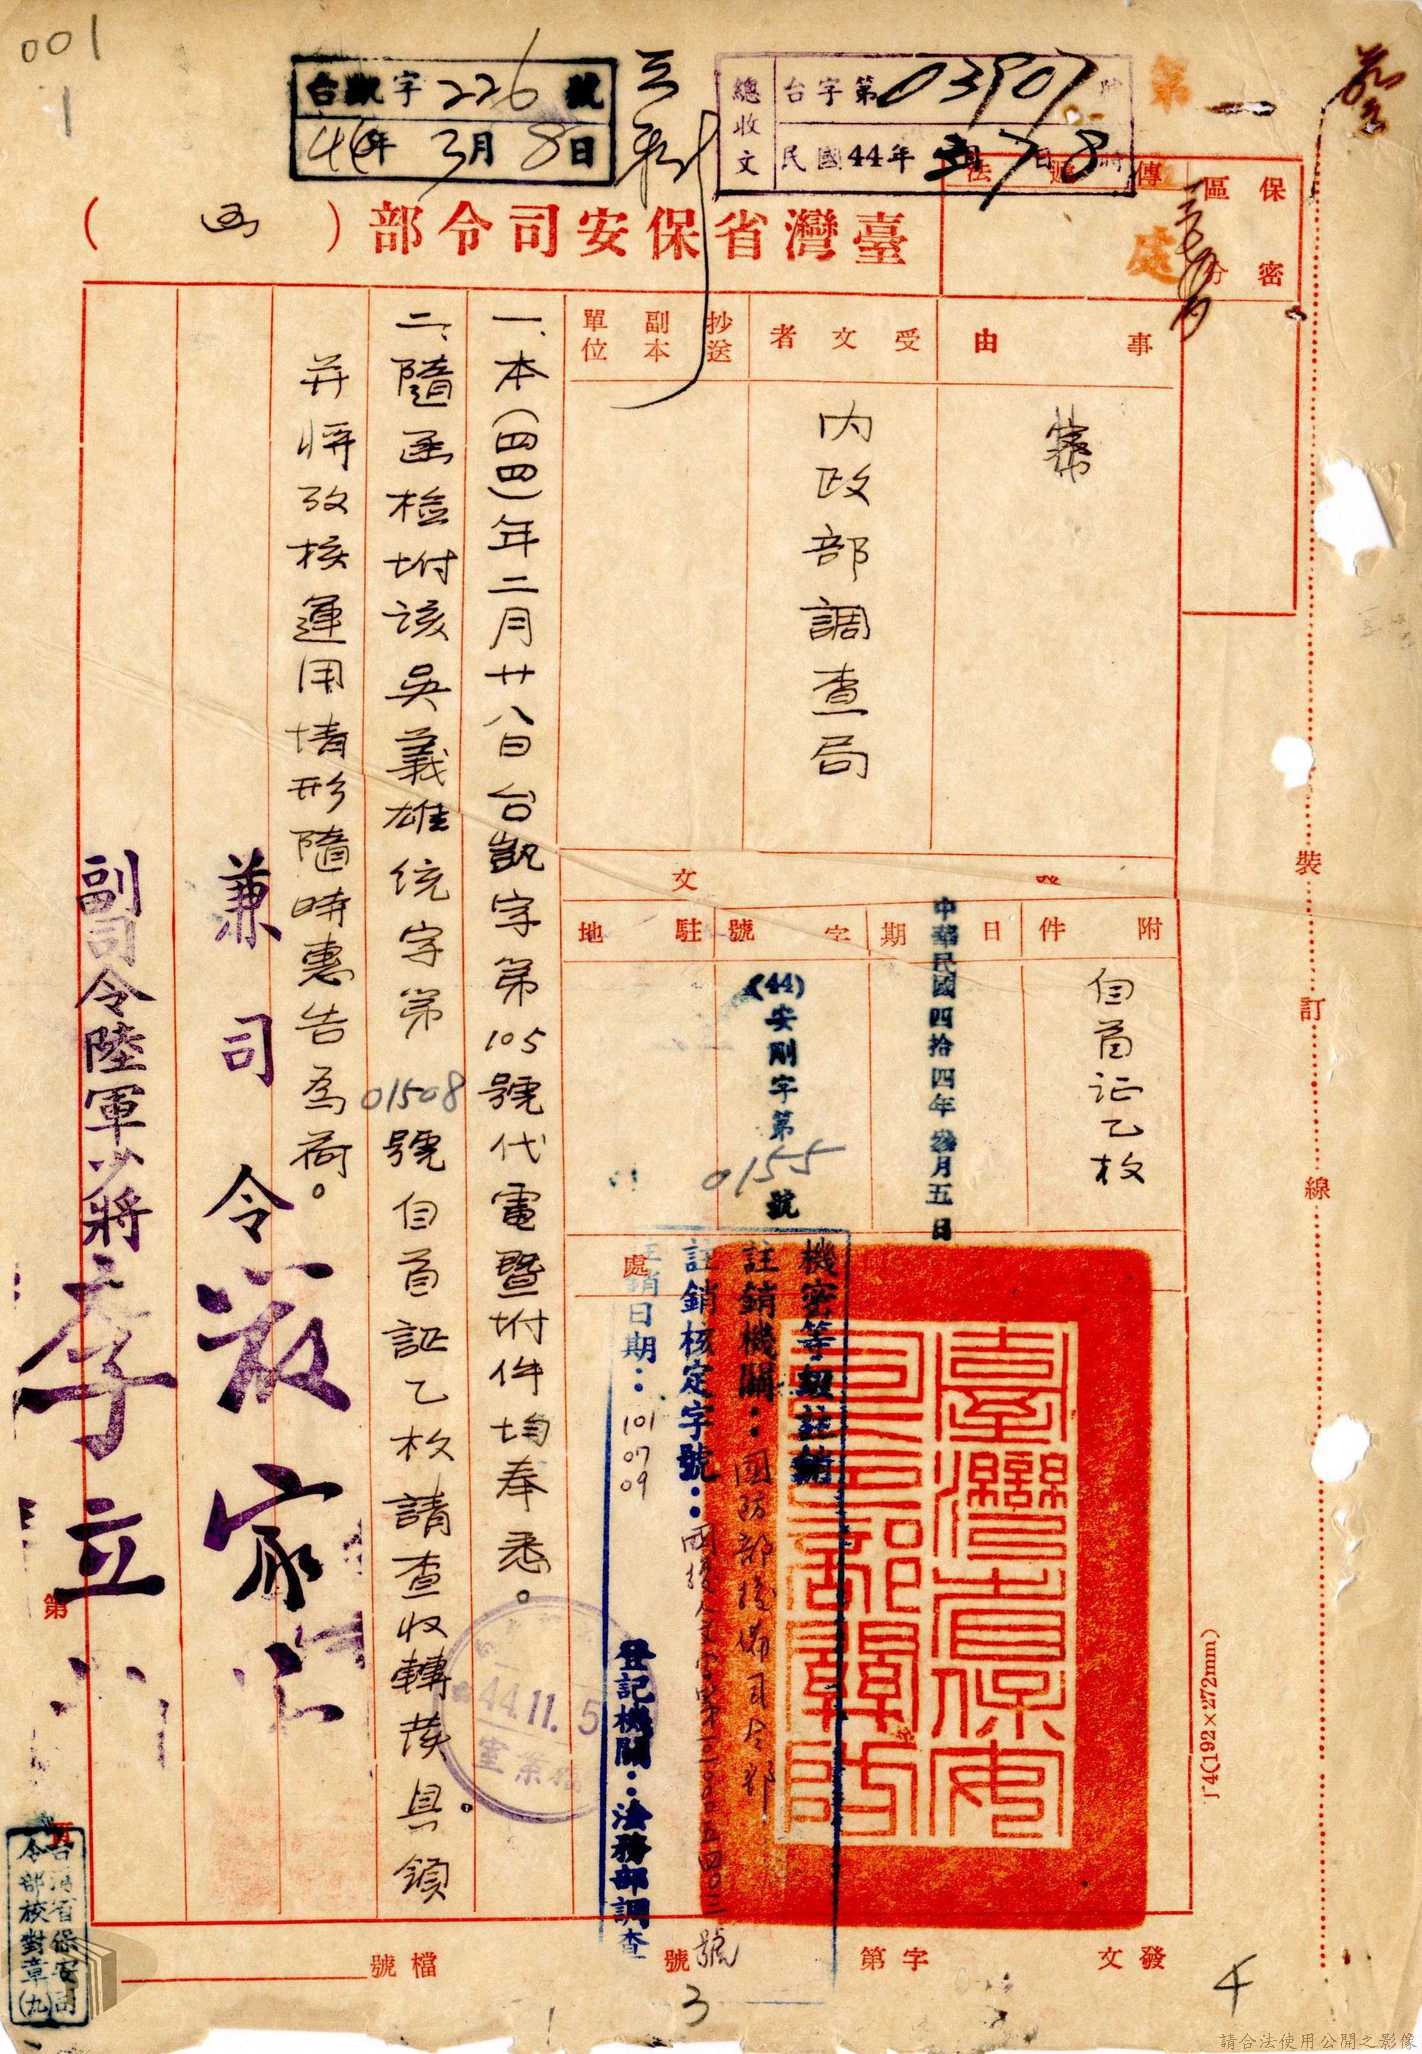 001
1
台凱字226號
44年3月8日
總收文
台字第03907號
民國44年3月8日
第一
處
臺灣省保安司令部
(函)
保密
區分
傳遞
法
事由
受文者
內政部調查局
抄送
副本
單位
附件
自首証乙枚
日期
中華民國四拾四年叁月五日
字號
(44)安剛字第0155號
駐地
文
一、本(四四)年二月廿八日台凱字第105號代電暨坿件均奉悉。
二、隨函檢坿該吳義雄統字第01508號自首証乙枚請查收轉發具領
并將攷核運用情形隨時惠告為荷。
兼司令嚴家淦
副司令陸軍少將李立柏
機密等級註銷
註銷機關：國防部後備司令部
註銷核定字號：
號
註銷日期：101 07 09
登記機關：法務部調查
處
臺灣省保安司令部關防
44.11.5
檔案室
裝
訂
線
J4(192×272mm)
發文
字第
號
檔號
第
頁
台灣省保安司
令部校對章(九)
3
4
請合法使用公開之影像